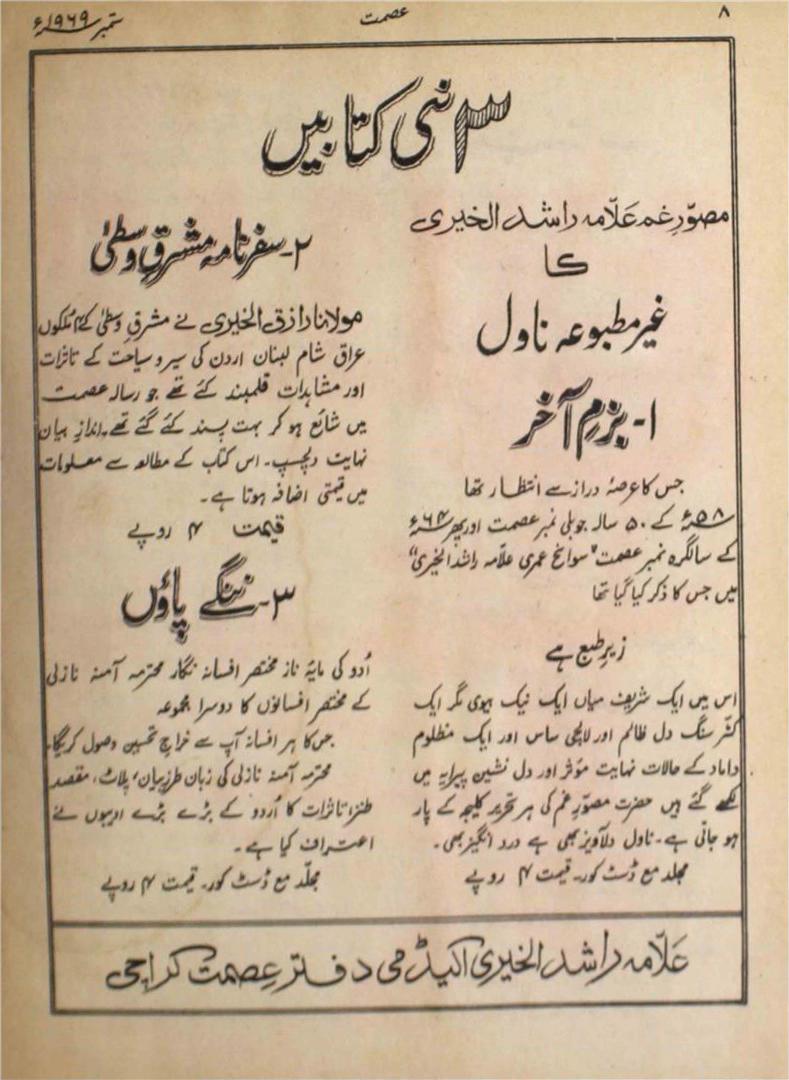 ۸
عصمت
ستمبر ۱۹۶۹ء
۳ نئی کتابیں
مصوّرِ غم علّامہ راشد الخیری
کا
غیر مطبوعہ ناول
۱۔ بزمِ آخر
جس کا عرصۂ دراز سے انتظار تھا
۵۸ء کے ۵۰ سالہ جوبلی نمبر عصمت اور پھر ۶۴ء
کے سالگرہ نمبر عصمت "سوانح عمری علّامہ راشد الخیری"
میں جس کا ذکر کیا گیا تھا
زیرِ طبع ہے
اس میں ایک شریف میاں ایک نیک بیوی مگر ایک
کٹّر سنگ دل ظالم اور لالچی ساس اور ایک مظلوم
داماد کے حالات نہایت مؤثر اور دل نشین پیرایہ میں
لکھے گئے ہیں حضرت مصوّرِ غم کی ہر تحریر کلیجہ کے پار
ہو جاتی ہے۔ ناول دلآویز بھی ہے درد انگیز بھی۔
مجلد مع ڈسٹ کور۔ قیمت ۴ روپے
۲۔ سفر نامہ مشرقِ وسطیٰ
مولانا رازق الخیری نے مشرقِ وسطیٰ کے ۴ ملکوں
عراق شام لبنان اردن کی سیر و سیاحت کے تاثرات
اور مشاہدات قلمبند کئے تھے جو رسالہ عصمت
میں شائع ہو کر بہت پسند کئے گئے تھے۔ اندازِ بیان
نہایت دلچسپ۔ اس کتاب کے مطالعہ سے معلومات
میں قیمتی اضافہ ہوتا ہے۔
قیمت ۴ روپے
۳۔ ننگے پاؤں
اُردو کی مایۂ ناز مختصر افسانہ نگار محترمہ آمنہ نازلی
کے مختصر افسانوں کا دوسرا مجموعہ
جس کا ہر افسانہ آپ سے خراجِ تحسین وصول کریگا۔
محترمہ آمنہ نازلی کی زبان طرزِ بیان، پلاٹ، مقصد
طنز، تاثرات کا اُردو کے بڑے بڑے ادیبوں نے
اعتراف کیا ہے۔
مجلّد مع ڈسٹ کور۔ قیمت ۴ روپے
علّامہ راشد الخیری اکیڈمی دفتر عصمت کراچی